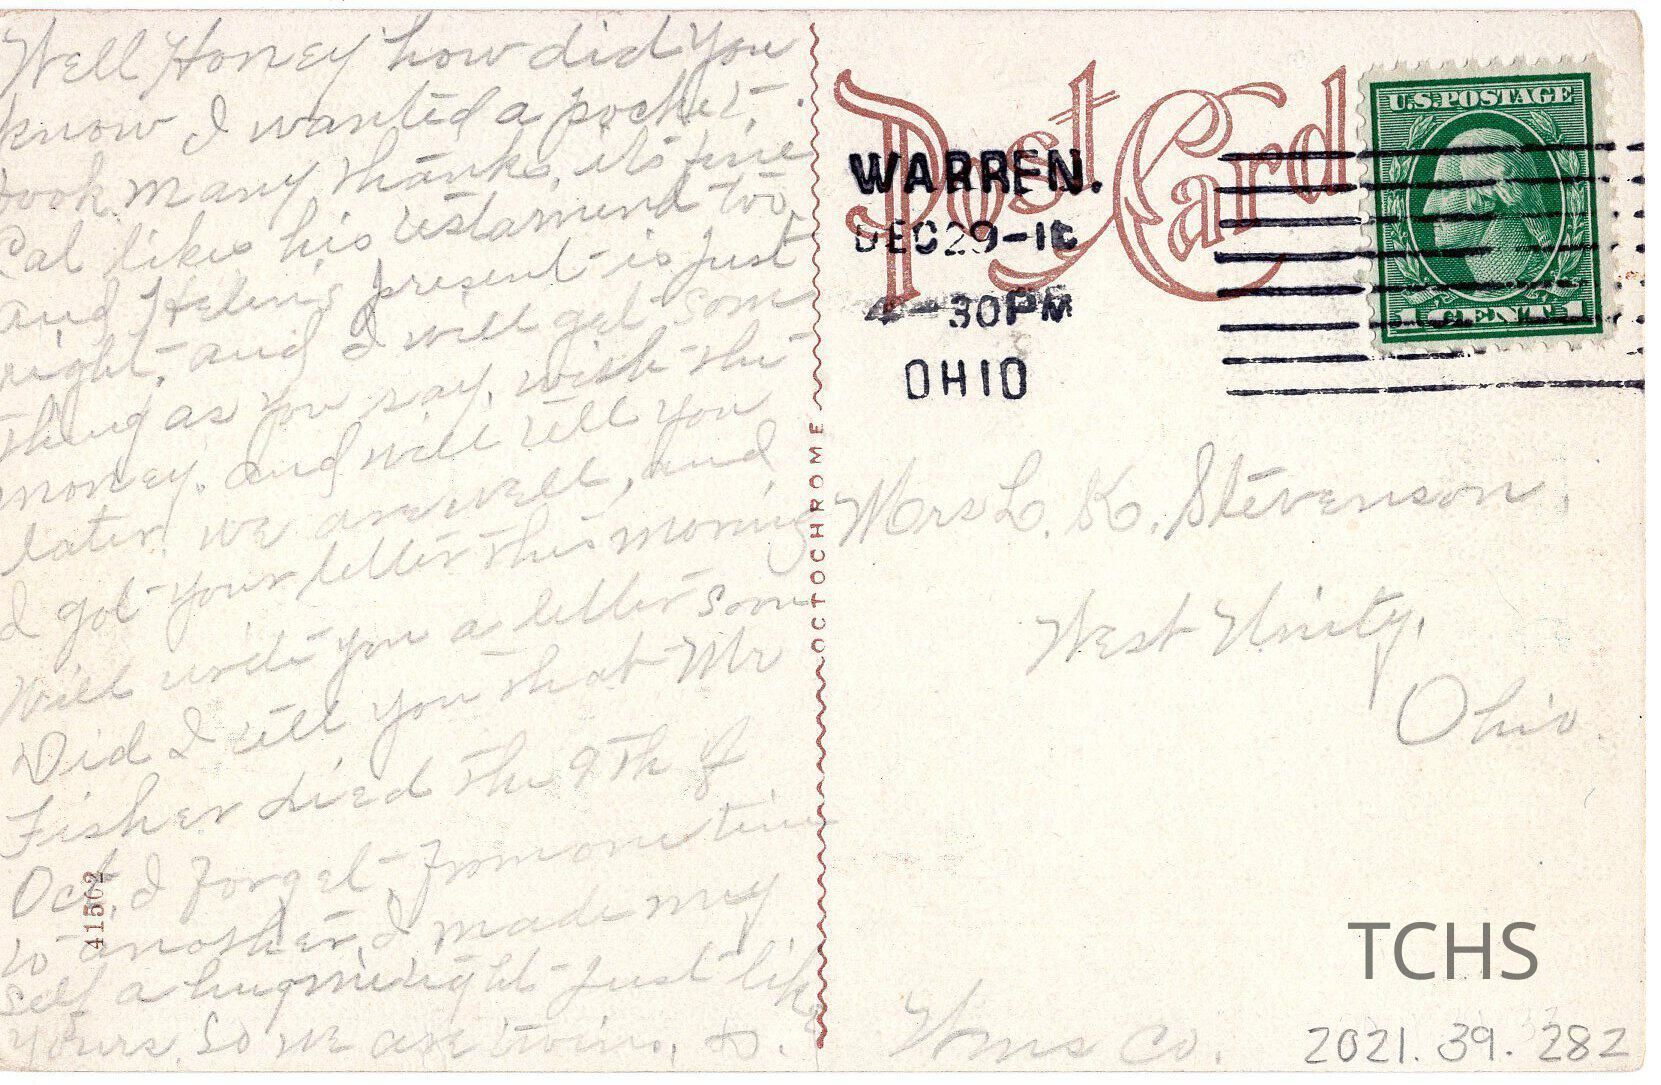 Well Honey how did you
know I wanted a pocket
book many thanks, its fine
Cal likes his testament too
and Helen's present is just
right, and I will get some
thing as you say, with the
money. and will tell you
later. we are well, and
I got your letter this morning
Will write you a letter soon
Did I tell you that Mr
Fisher died the 9th of
Oct, I forget from one time
to another, I made my
self a hug just like
yours. So we are twins, to.
41502
OCTOCHROME
Post Card
WARREN.
DEC 29-16
4-30PM
OHIO
U.S. POSTAGE
1 CENT 1
Mrs L. K. Stevenson,
West Unity,
Ohio.
Wms Co.
TCHS
2021.39.282